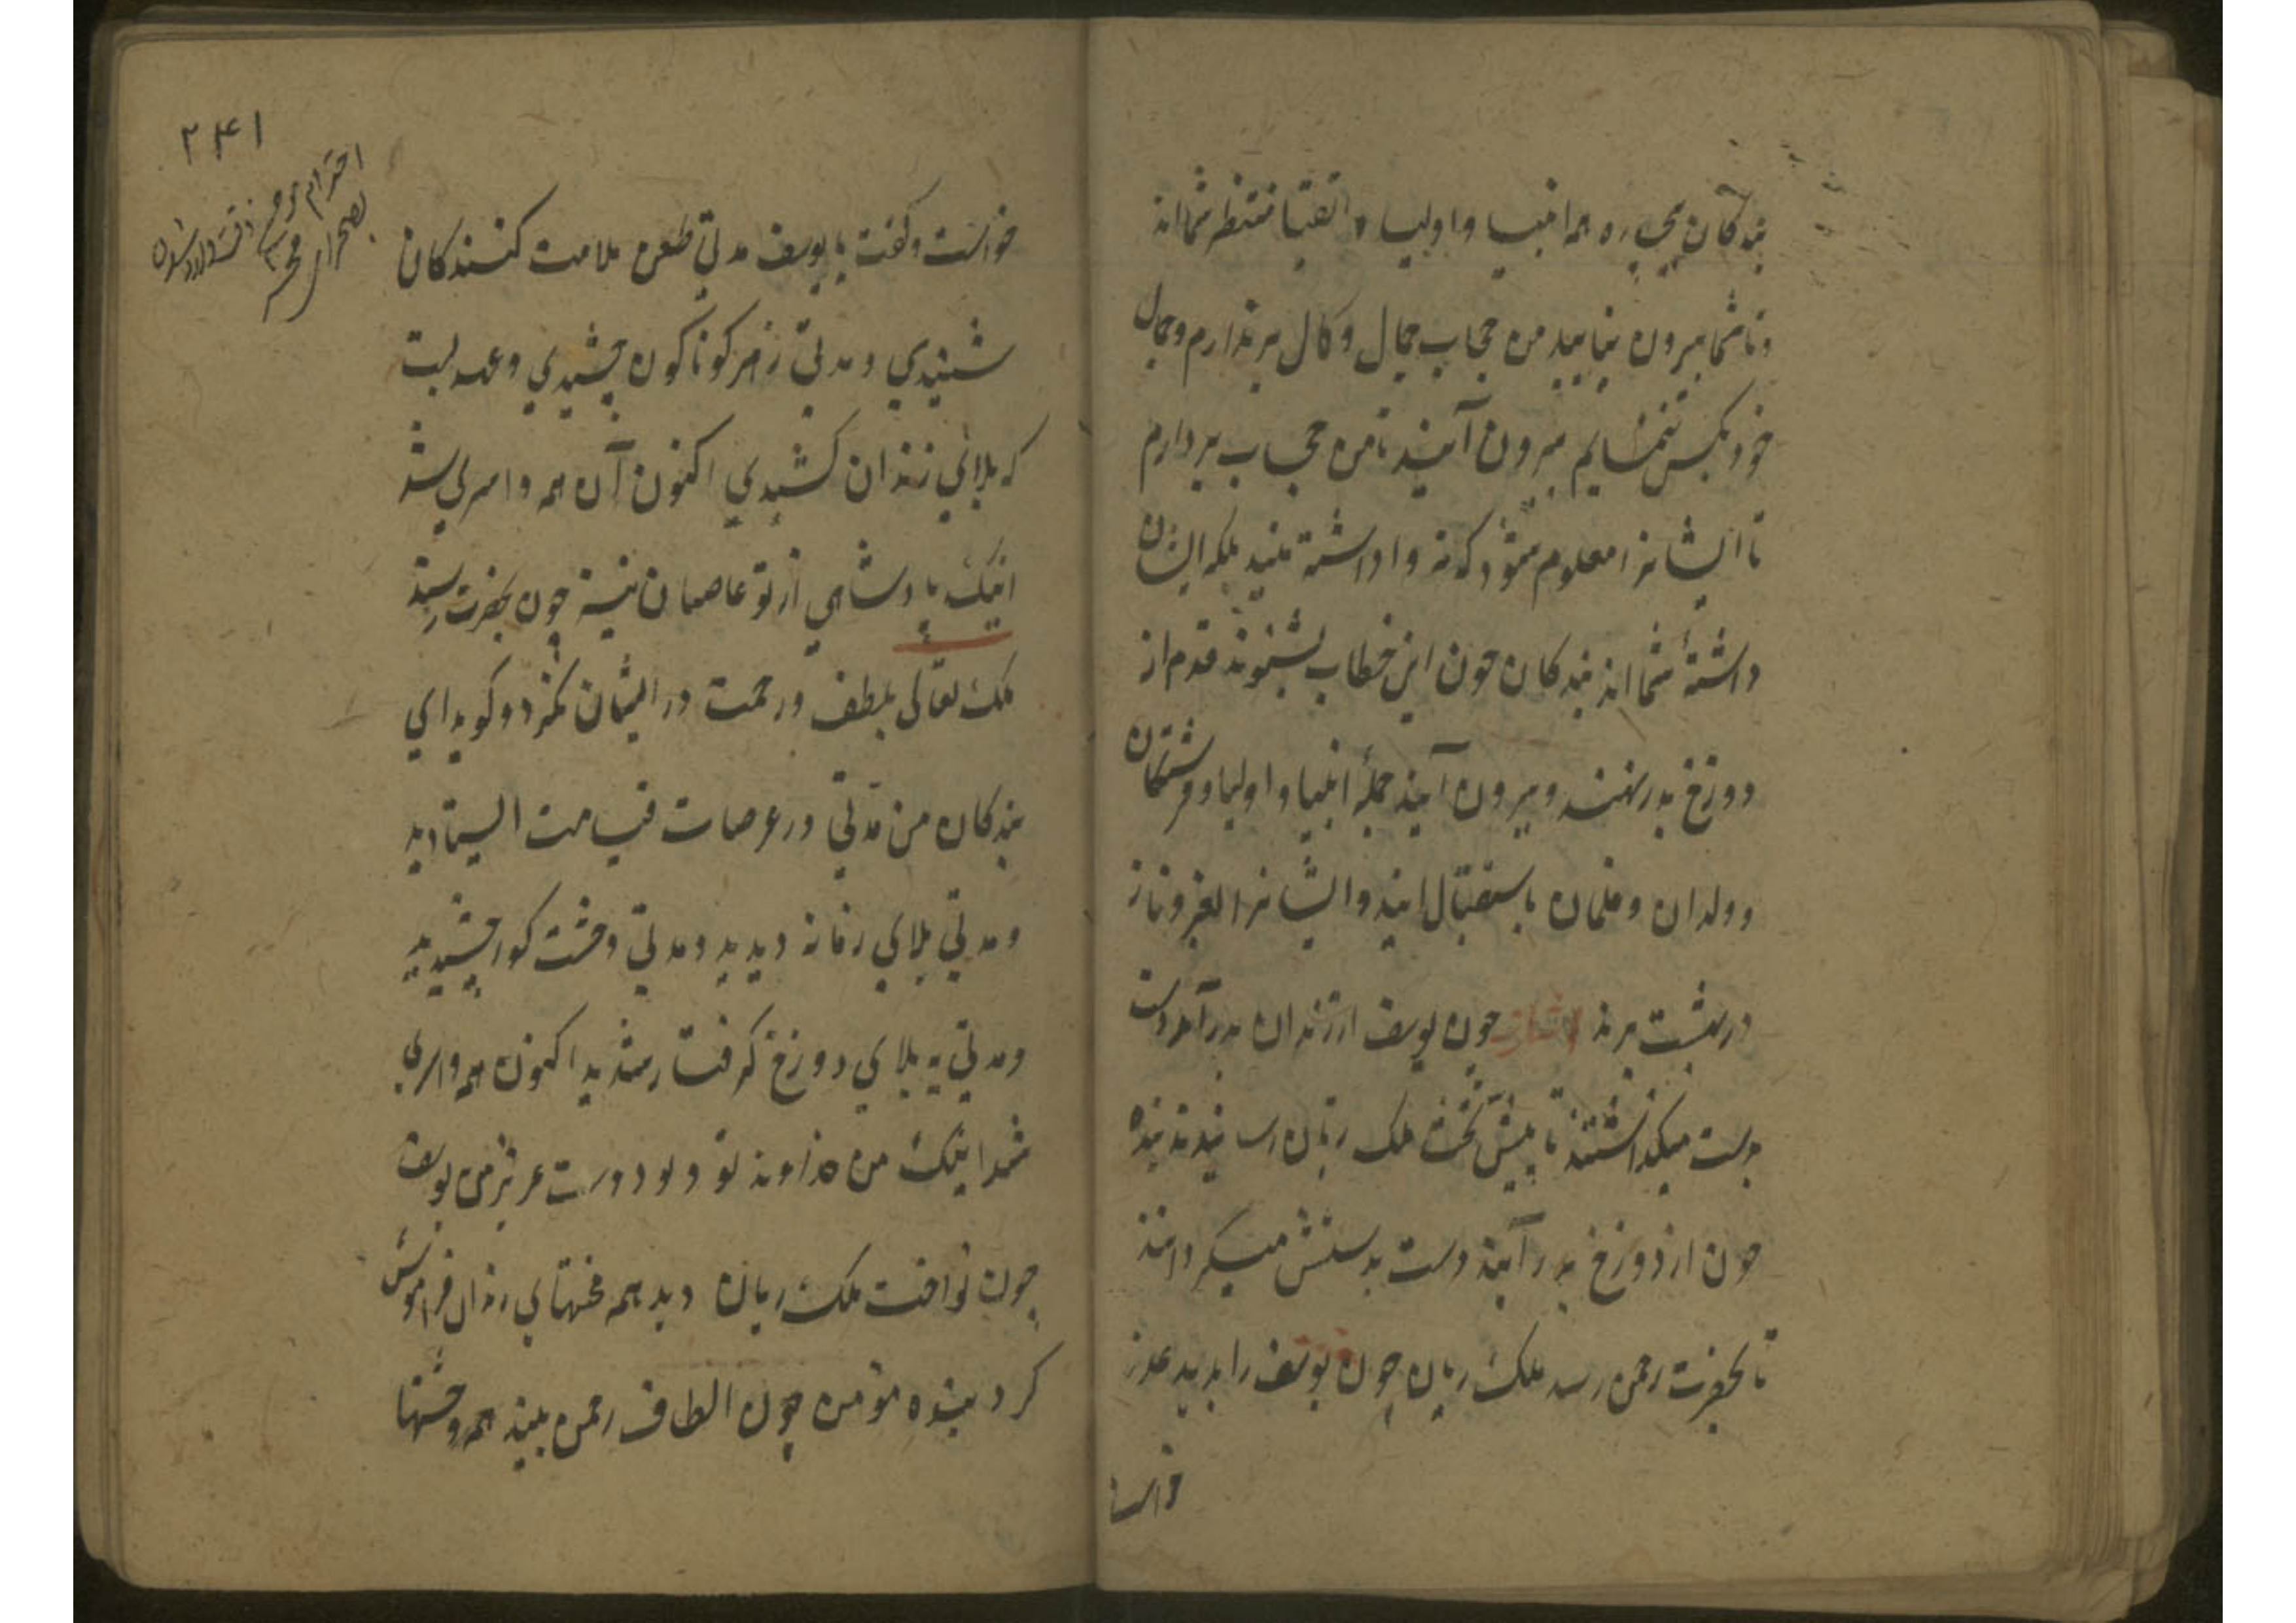 بندگان بیچاره همه انبیا و اولیا و اتقیا منتظر شمااند
و تا شما بیرون نیایید من حجاب جمال و کمال برندارم و جمال
خود بکس ننمایم بیرون آیید تا من حجاب بردارم
تا ایشانرا معلوم شود که نه وا داشته‌اند بلکه ایشان
داشتۀ شمااند بندکان چون این خطاب بشنوند قدم از
دوزخ بدر نهند و بیرون آیند جملۀ انبیا و اولیا و فرشتگان
و ولدان و غلمان باستقبال ایند و ایشانرا بعز و ناز
در بهشت برند اشارت چون یوسف از زندان بدر آمد دست
بدست میگذاشتند تا پیش تخت ملک ریان رسانیدند بنده
چون از دوزخ بدر آیند دست بدستش میگردانند
تا بحضرت رحمن رسد ملک ریان چون یوسف را بدید عذر
خواست
۲۴۱
خواست و گفت یا یوسف مدتی طعن ملامت کنندکان
شنیدی و مدتی زهر کوناکون چشیدی و
که بلای زندان کشیدی اکنون آن همه وا سر لی شد
اینک پادشاهی از تو عاصیان نیز چون بحضرت رسند
ملک تعالی بلطف و رحمت در ایشان نگرد و کوید ای
بندکان من مدتی در عرصات قیامت ایستادید
و مدتی بلای زمانه دیدید و مدتی وحشت کور چشیدید
و مدتی به بلای دوزخ گرفتار شدید اکنون همه وا سر لی
شد اینک من خداوند تو و تو دوست عزیز من یوسف
چون نواخت ملک ریان دید همه محنتهای زندان فراموش
کرد بنده مؤمن چون الطاف رحمن بیند همه وحشتها